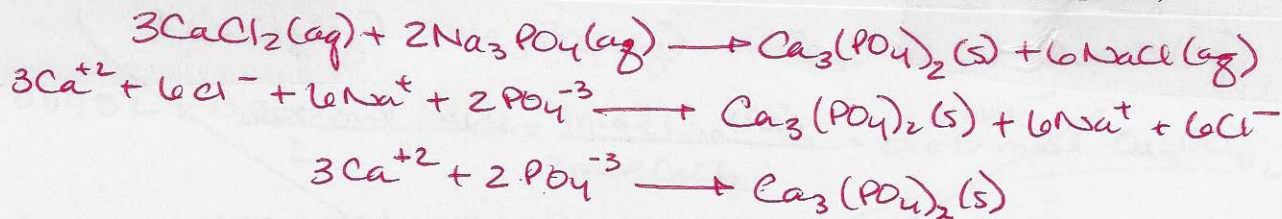 3CaCl₂(aq) + 2Na₃PO₄(aq) ⟶ Ca₃(PO₄)₂(s) + 6NaCl(aq)
3Ca⁺² + 6Cl⁻ + 6Na⁺ + 2PO₄⁻³ ⟶ Ca₃(PO₄)₂(s) + 6Na⁺ + 6Cl⁻
3Ca⁺² + 2PO₄⁻³ ⟶ Ca₃(PO₄)₂(s)